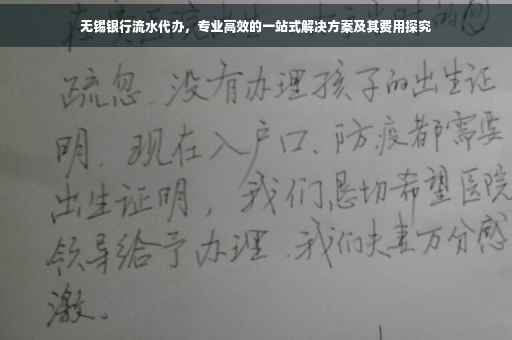 无锡银行流水代办，专业高效的一站式解决方案及其费用探究
疏忽、没有办理孩子的出生证
明、现在入户口、防疫都需要
出生证明，我们恳切希望医院
领导给予办理、我们夫妻万分感
激。